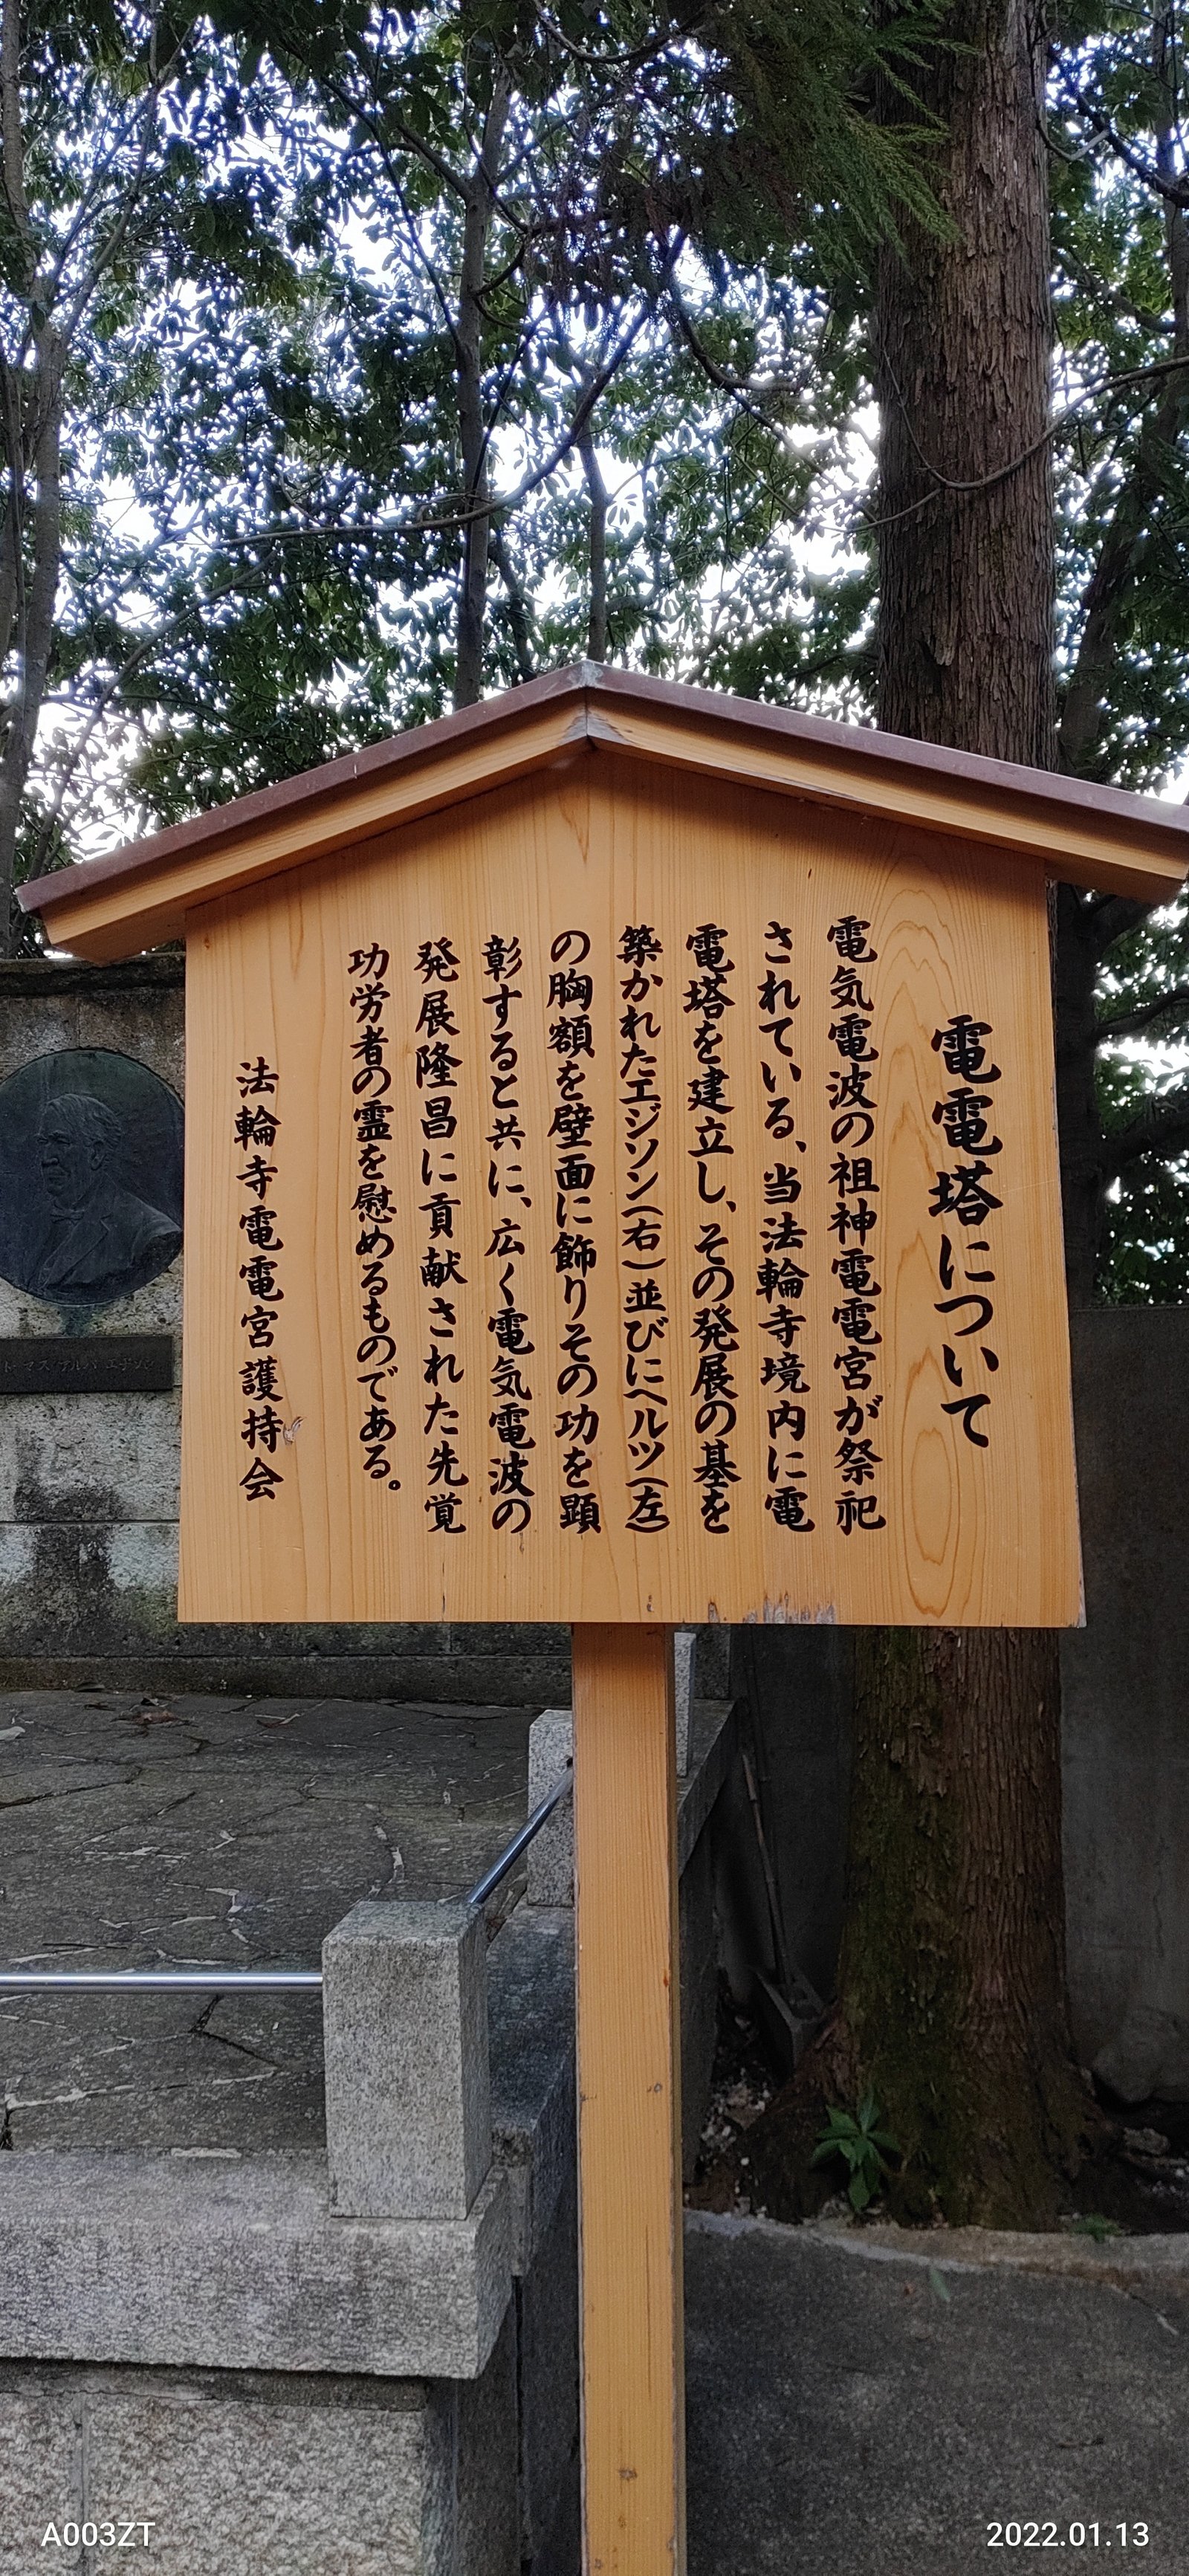 電電塔について
電気電波の祖神電電宮が祭祀
されている、当法輪寺境内に電
電塔を建立し、その発展の基を
築かれたエジソン(右)並びにヘルツ(左)
の胸額を壁面に飾りその功を顕
彰すると共に、広く電気電波の
発展隆昌に貢献された先覚
功労者の霊を慰めるものである。
法輪寺電電宮護持会
トーマス・アルバ エヂソン
A003ZT
2022.01.13